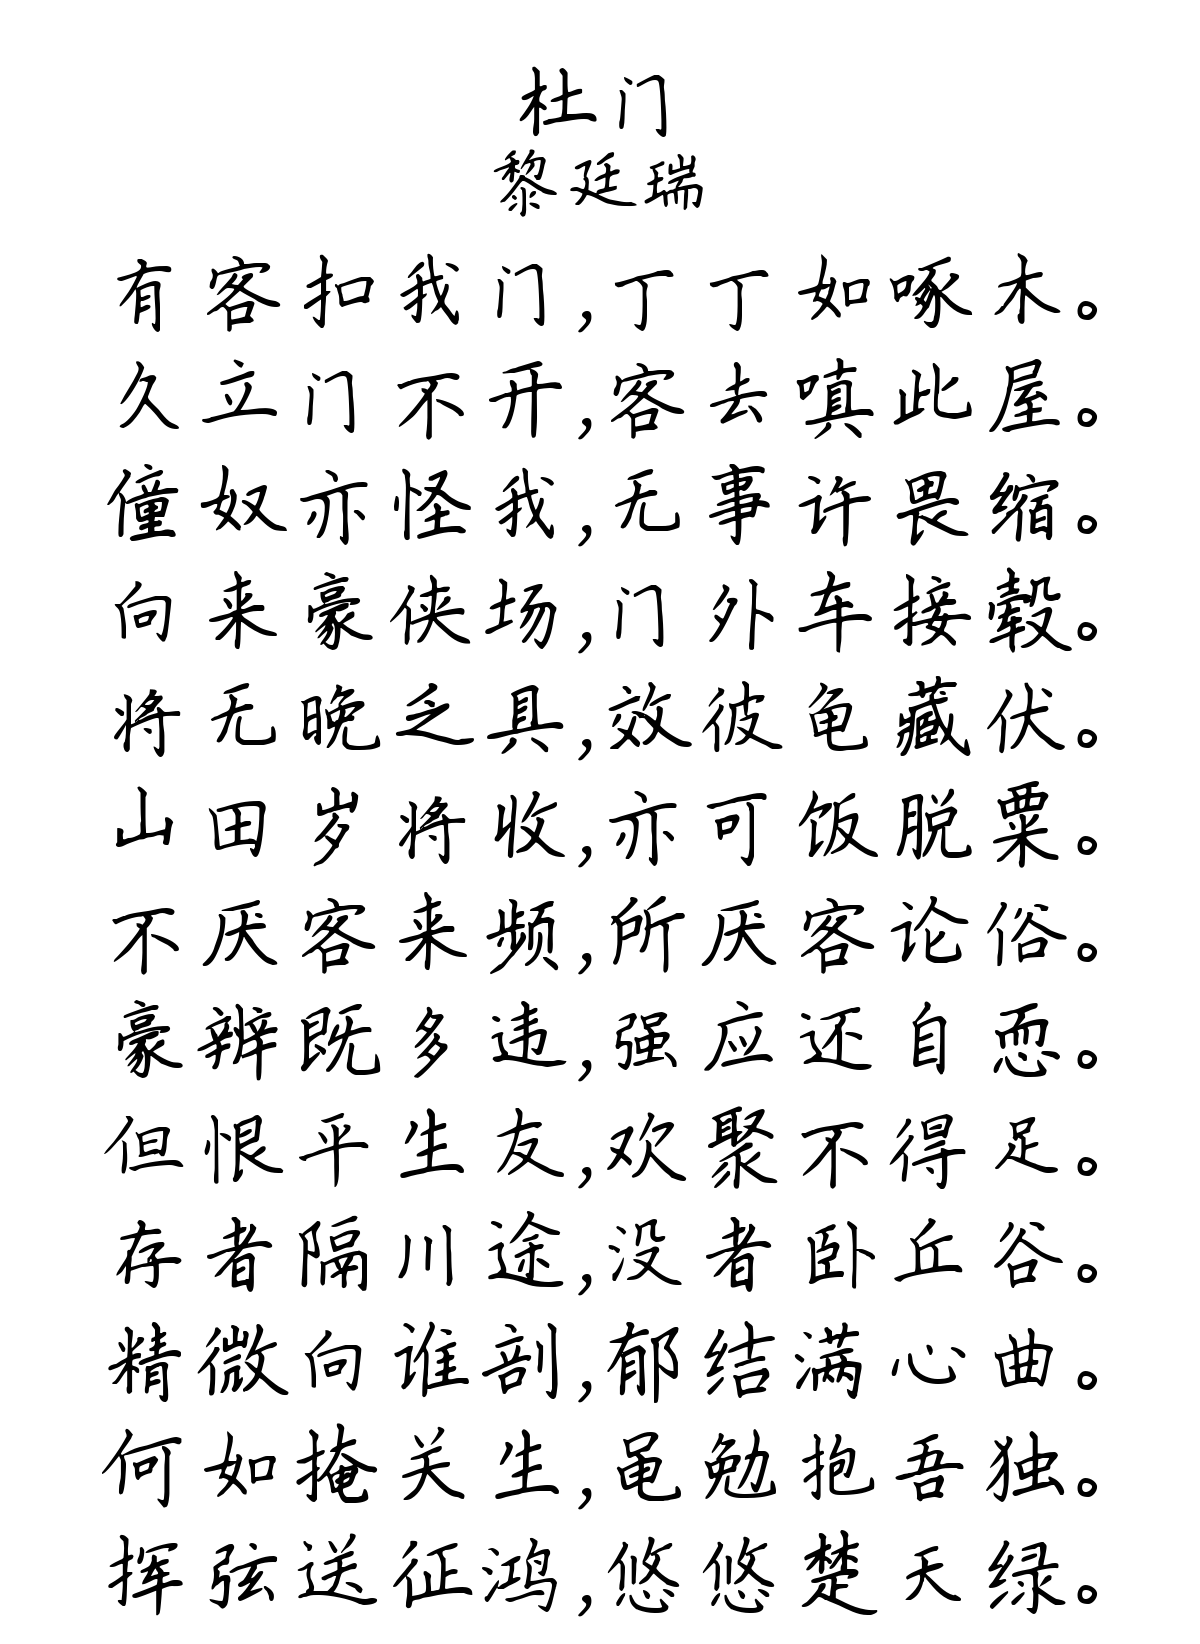 杜门
黎廷瑞
有客扣我门,丁丁如啄木。
久立门不开,客去嗔此屋。
僮奴亦怪我,无事许畏缩。
向来豪侠场,门外车接毂。
将无晚乏具,效彼龟藏伏。
山田岁将收,亦可饭脱粟。
不厌客来频,所厌客论俗。
豪辨既多违,强应还自恧。
但恨平生友,欢聚不得足。
存者隔川途,没者卧丘谷。
精微向谁剖,郁结满心曲。
何如掩关生,黾勉抱吾独。
挥弦送征鸿,悠悠楚天绿。